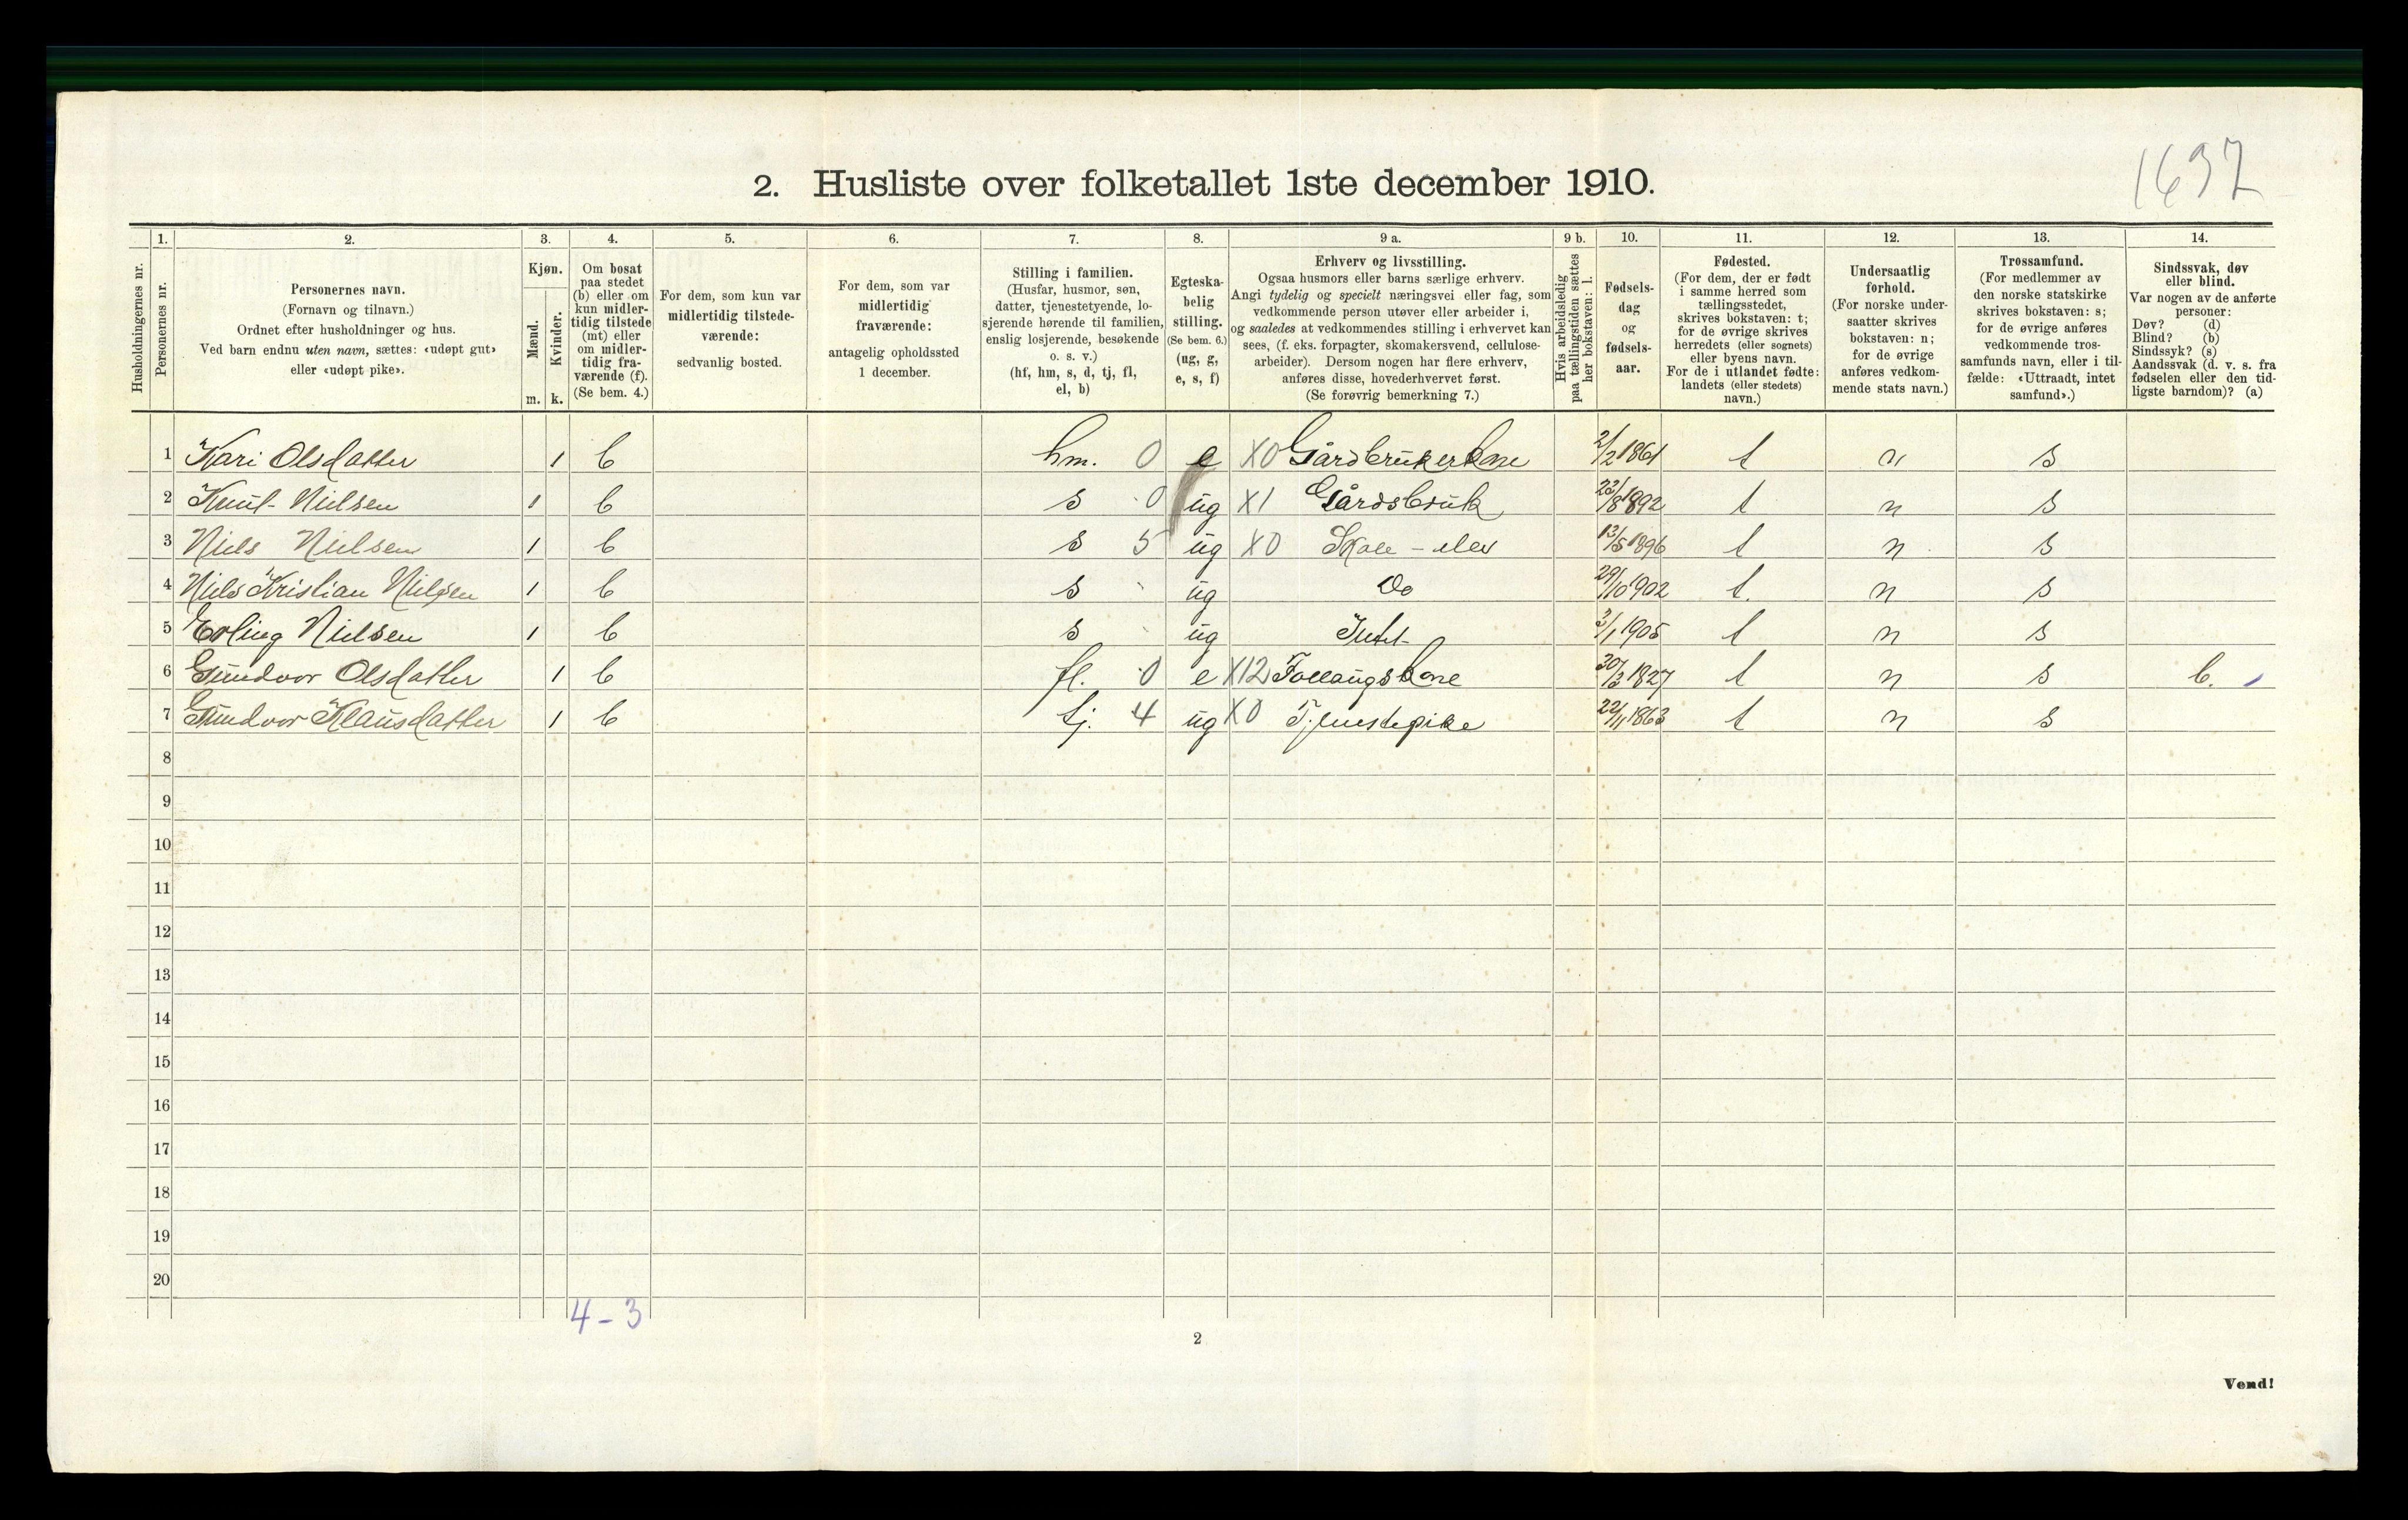 1637
2. Husliste over folketallet 1ste december 1910.
1. 2. 3. 4. 5. 6. 7. 8. 9 a. 9 b. 10. 11. 12. 13. 14.
Husholdningernes nr.
Personernes nr.
Personernes navn.
(Fornavn og tilnavn.)
Ordnet efter husholdninger og hus.
Ved barn endnu uten navn, sættes: «udøpt gut»
eller «udøpt pike».
Kjøn.
Mænd.
Kvinder.
m. k.
Om bosat
paa stedet
(b) eller om
kun midler-
tidig tilstede
(mt) eller
om midler-
tidig fra-
værende (f).
(Se bem. 4.)
For dem, som kun var
midlertidig tilstede-
værende:
sedvanlig bosted.
For dem, som var
midlertidig
fraværende:
antagelig opholdssted
1 december.
Stilling i familien.
(Husfar, husmor, søn,
datter, tjenestetyende, lo-
sjerende hørende til familien,
enslig losjerende, besøkende
o. s. v.)
(hf, hm, s, d, tj, fl,
el, b)
Egteska-
belig
stilling.
(Se bem. 6.)
(ug, g,
e, s, f)
Erhverv og livsstilling.
Ogsaa husmors eller barns særlige erhverv.
Angi tydelig og specielt næringsvei eller fag, som
vedkommende person utøver eller arbeider i,
og saaledes at vedkommendes stilling i erhvervet kan
sees, (f. eks. forpagter, skomakersvend, cellulose-
arbeider). Dersom nogen har flere erhverv,
anføres disse, hovederhvervet først.
(Se forøvrig bemerkning 7.)
Hvis arbeidsledig
paa tællingstiden sættes
her bokstaven: l.
Fødsels-
dag
og
fødsels-
aar.
Fødested.
(For dem, der er født
i samme herred som
tællingsstedet,
skrives bokstaven: t;
for de øvrige skrives
herredets (eller sognets)
eller byens navn.
For de i utlandet fødte:
landets (eller stedets)
navn.)
Undersaatlig
forhold.
(For norske under-
saatter skrives
bokstaven: n;
for de øvrige
anføres vedkom-
mende stats navn.)
Trossamfund.
(For medlemmer av
den norske statskirke
skrives bokstaven: s;
for de øvrige anføres
vedkommende tros-
samfunds navn, eller i til-
fælde: «Uttraadt, intet
samfund».)
Sindssvak, døv
eller blind.
Var nogen av de anførte
personer:
Døv? (d)
Blind? (b)
Sindssyk? (s)
Aandssvak (d. v. s. fra
fødselen eller den tid-
ligste barndom)? (a)
1 Kari Olsdatter 1 b hm. 0 e X0 Gårdbrukerkone 2/2 1861 t n s
2 Knut Nielsen 1 b s 0 ug X1 Gårdsbruk 23/8 1892 t n s
3 Niels Nielsen 1 b s 5 ug X0 Skole-elev 13/5 1896 t n s
4 Niels Kristian Nielsen 1 b s ug Do 29/10 1902 t. n s
5 Erling Nielsen 1 b s ug Intet 3/1 1905 t n s
6 Gundvor Olsdatter 1 b fl. 0 e X12 Føllaugskone 30/3 1827 t n s b.
7 Gundvor Klausdatter 1 b tj. 4 ug X0 Tjenestepike 22/11 1863 t n s
8
9
10
11
12
13
14
15
16
17
18
19
20
4-3
2
Vend!